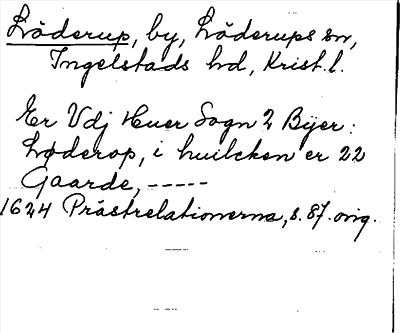 Löderup, by, Löderups sn,
Ingelstads hd, Krist. l.
Er Vdj Huer Sogn 2 Byer:
Løderop, i huilcken er 22
Gaarde, -----
1624 Prästrelationerna, s. 87. orig.